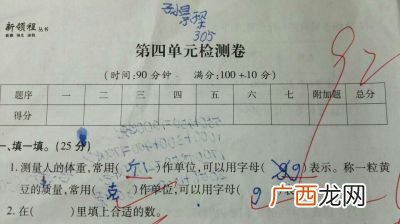 孙景琛
305
新领程 丛书
第四单元检测卷
(时间:90分钟 满分:100+10分)
92
题序 一 二 三 四 五 六 七 附加题 总分
得分
一、填一填。(25分)
1.测量人的体重,常用( 斤 )作单位,可以用字母( kg )表示。称一粒黄
豆的质量,常用( 克 )作单位,可以用字母( g )表
2.在( )里填上合适的数。
广西龙网